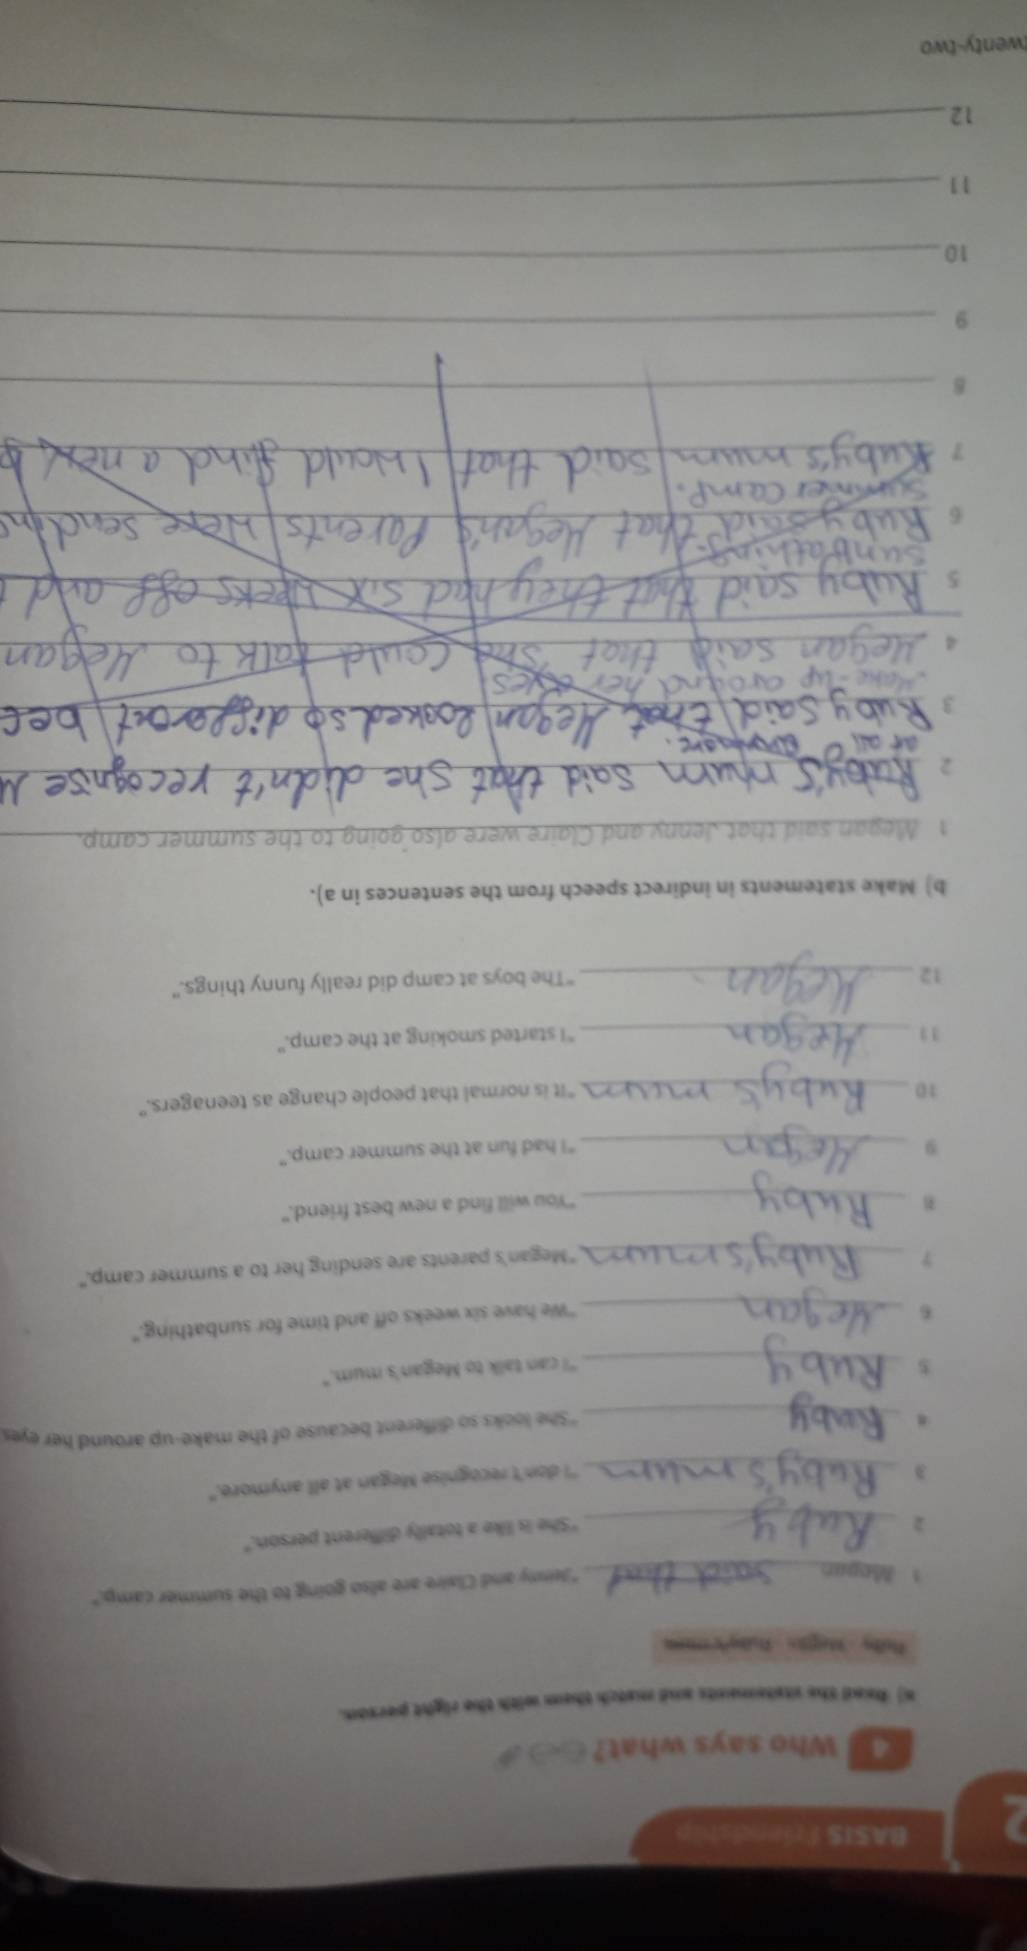 2 BASIS Friendship
4 Who says what?
a) Read the statements and match them with the right person.
Ruby · Megan · Ruby's mum
1 Megan said that "Jenny and Claire are also going to the summer camp."
2 Ruby "She is like a totally different person."
3 Ruby's mum "I don't recognise Megan at all anymore."
4 Ruby "She looks so different because of the make-up around her eyes
5 Ruby "I can talk to Megan's mum."
6 Megan "We have six weeks off and time for sunbathing."
7 Ruby's mum "Megan's parents are sending her to a summer camp."
8 Ruby "You will find a new best friend."
9 Megan "I had fun at the summer camp."
10 Ruby's mum "It is normal that people change as teenagers."
11 Megan "I started smoking at the camp."
12 Megan "The boys at camp did really funny things."
b) Make statements in indirect speech from the sentences in a).
1 Megan said that Jenny and Claire were also going to the summer camp.
2 Ruby's mum said that she didn't recognise M
at all anymore.
3 Ruby said that Megan looked so different bec
Make-up around her eyes.
4 Megan said that she could talk to Megan
5 Ruby said that they had six weeks off and
sunbathing.
6 Ruby said that Megan's Parents were sending
summer camp.
7 Ruby's mum said that I would find a new b
8
9
10
11
12
twenty-two